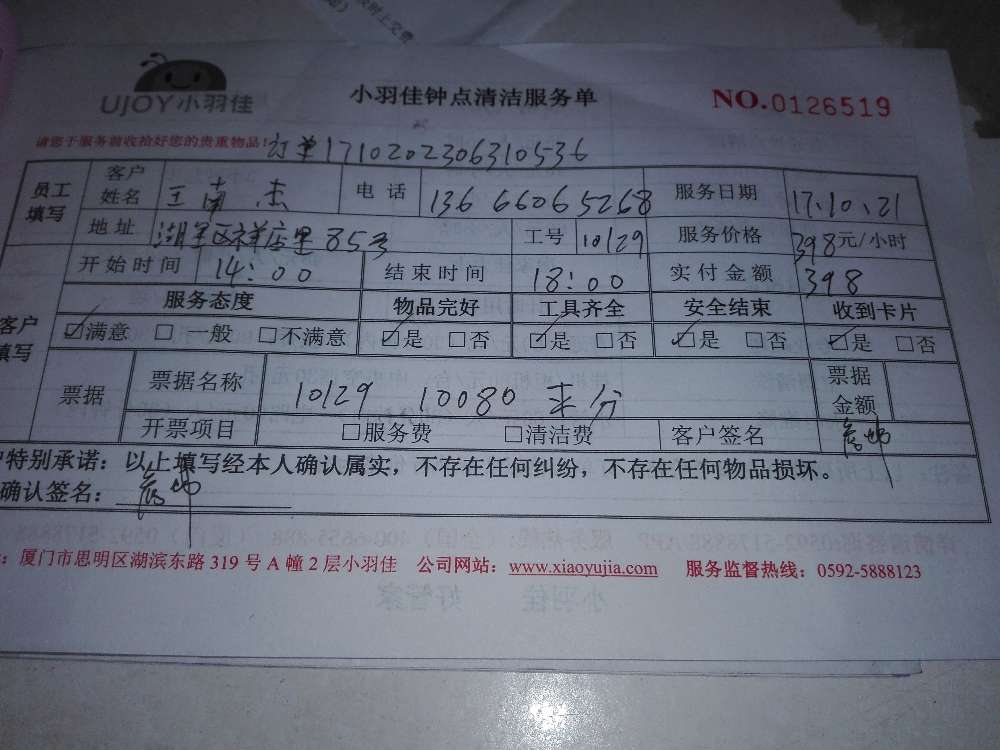 时上交费
UJOY小羽佳 小羽佳钟点清洁服务单 NO.0126519
请您于服务前收拾好您的贵重物品! 订单171020230631053​6
员工填写 客户姓名 王南杰 电话 13666065268 服务日期 17.10.21
地址 湖里区祥店里85号 工号 10129 服务价格 398元/小时
开始时间 14:00 结束时间 18:00 实付金额 398
客户填写 服务态度 物品完好 工具齐全 安全结束 收到卡片
☑满意 □一般 □不满意 ☑是 □否 ☑是 □否 ☑是 □否 ☑是 □否
票据 票据名称 10129 10080 来分 票据金额
开票项目 □服务费 □清洁费 客户签名
户特别承诺：以上填写经本人确认属实，不存在任何纠纷，不存在任何物品损坏。
确认签名：
：厦门市思明区湖滨东路319号A幢2层小羽佳 公司网站：www.xiaoyujia.com 服务监督热线：0592-5888123